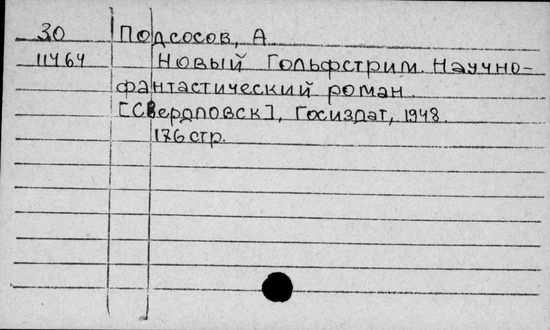 30 Подсосов, А
11464 Новый Гольфстрим. Научно-
фантастический роман.
[Свердловск], Госиздат, 1948.
186 стр.